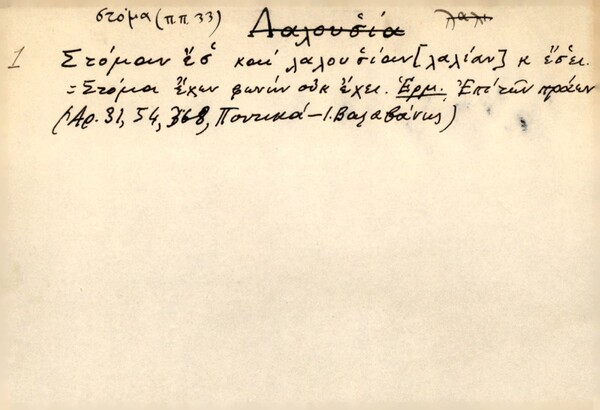 στόμα (π.π. 33) Λαλουσία λαλι
1 Στόμαν ἔσ̌ καὶ λαλουσίαν [λαλίαν] κ̓ ἔσ̌ει.
= Στόμα ἔχει φωνὴν οὐκ ἔχει. Ἑρμ. Ἐπὶ τῶν πράων
(Ἀρ. 31, 54, 368, Ποντικά – Ι. Βαλαβάνης)